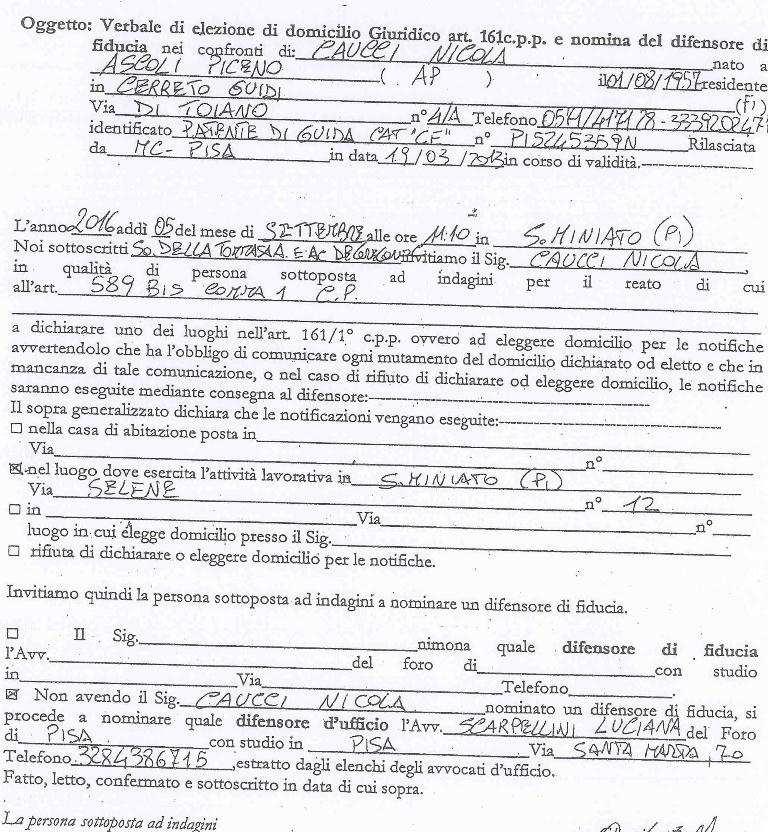 Oggetto: Verbale di elezione di domicilio Giuridico art. 161c.p.p. e nomina del difensore di
fiducia nei confronti di: CAUCCI NICOLA nato a
ASCOLI PICENO ( AP ) il 01/08/1957 residente
in CERRETO GUIDI (FI)
Via DI TOIANO n° 4/A Telefono 0571/417178 - 3339202471
identificato PATENTE DI GUIDA CAT "CE" n° PI5245359N Rilasciata
da MC- PISA in data 19/03/2013 in corso di validità.
L'anno 2016 addì 05 del mese di SETTEMBRE alle ore 11:10 in S. MINIATO (PI)
Noi sottoscritti So. DELLA E Ac invitiamo il Sig. CAUCCI NICOLA,
in qualità di persona sottoposta ad indagini per il reato di cui
all'art. 589 BIS COMMA 1 C.P.
a dichiarare uno dei luoghi nell'art. 161/1° c.p.p. ovvero ad eleggere domicilio per le notifiche
avvertendolo che ha l'obbligo di comunicare ogni mutamento del domicilio dichiarato od eletto e che in
mancanza di tale comunicazione, o nel caso di rifiuto di dichiarare od eleggere domicilio, le notifiche
saranno eseguite mediante consegna al difensore:
Il sopra generalizzato dichiara che le notificazioni vengano eseguite:
☐ nella casa di abitazione posta in
Via n°
☒ nel luogo dove esercita l'attività lavorativa in S. MINIATO (PI)
Via SELENE n° 12
☐ in Via n°
luogo in cui élegge domicilio presso il Sig.
☐ rifiuta di dichiarare o eleggere domicilio per le notifiche.
Invitiamo quindi la persona sottoposta ad indagini a nominare un difensore di fiducia.
☐ Il Sig. nimona quale difensore di fiducia
l'Avv. del foro di con studio
in Via Telefono .
☒ Non avendo il Sig. CAUCCI NICOLA nominato un difensore di fiducia, si
procede a nominare quale difensore d'ufficio l'Avv. SCARPELLINI LUCIANA del Foro
di PISA con studio in PISA Via SANTA MARTA, 70
Telefono 3284386715 ,estratto dagli elenchi degli avvocati d'ufficio.
Fatto, letto, confermato e sottoscritto in data di cui sopra.
La persona sottoposta ad indagini